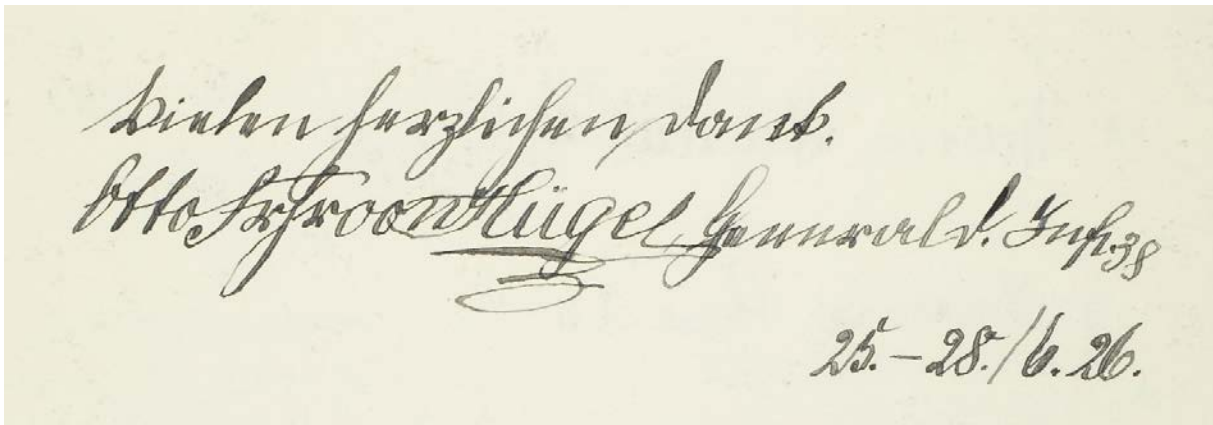 Vielen herzlichen Dank.
Otto Frhr von Hügel General d. Inf. z. D.
25.–28./6. 26.